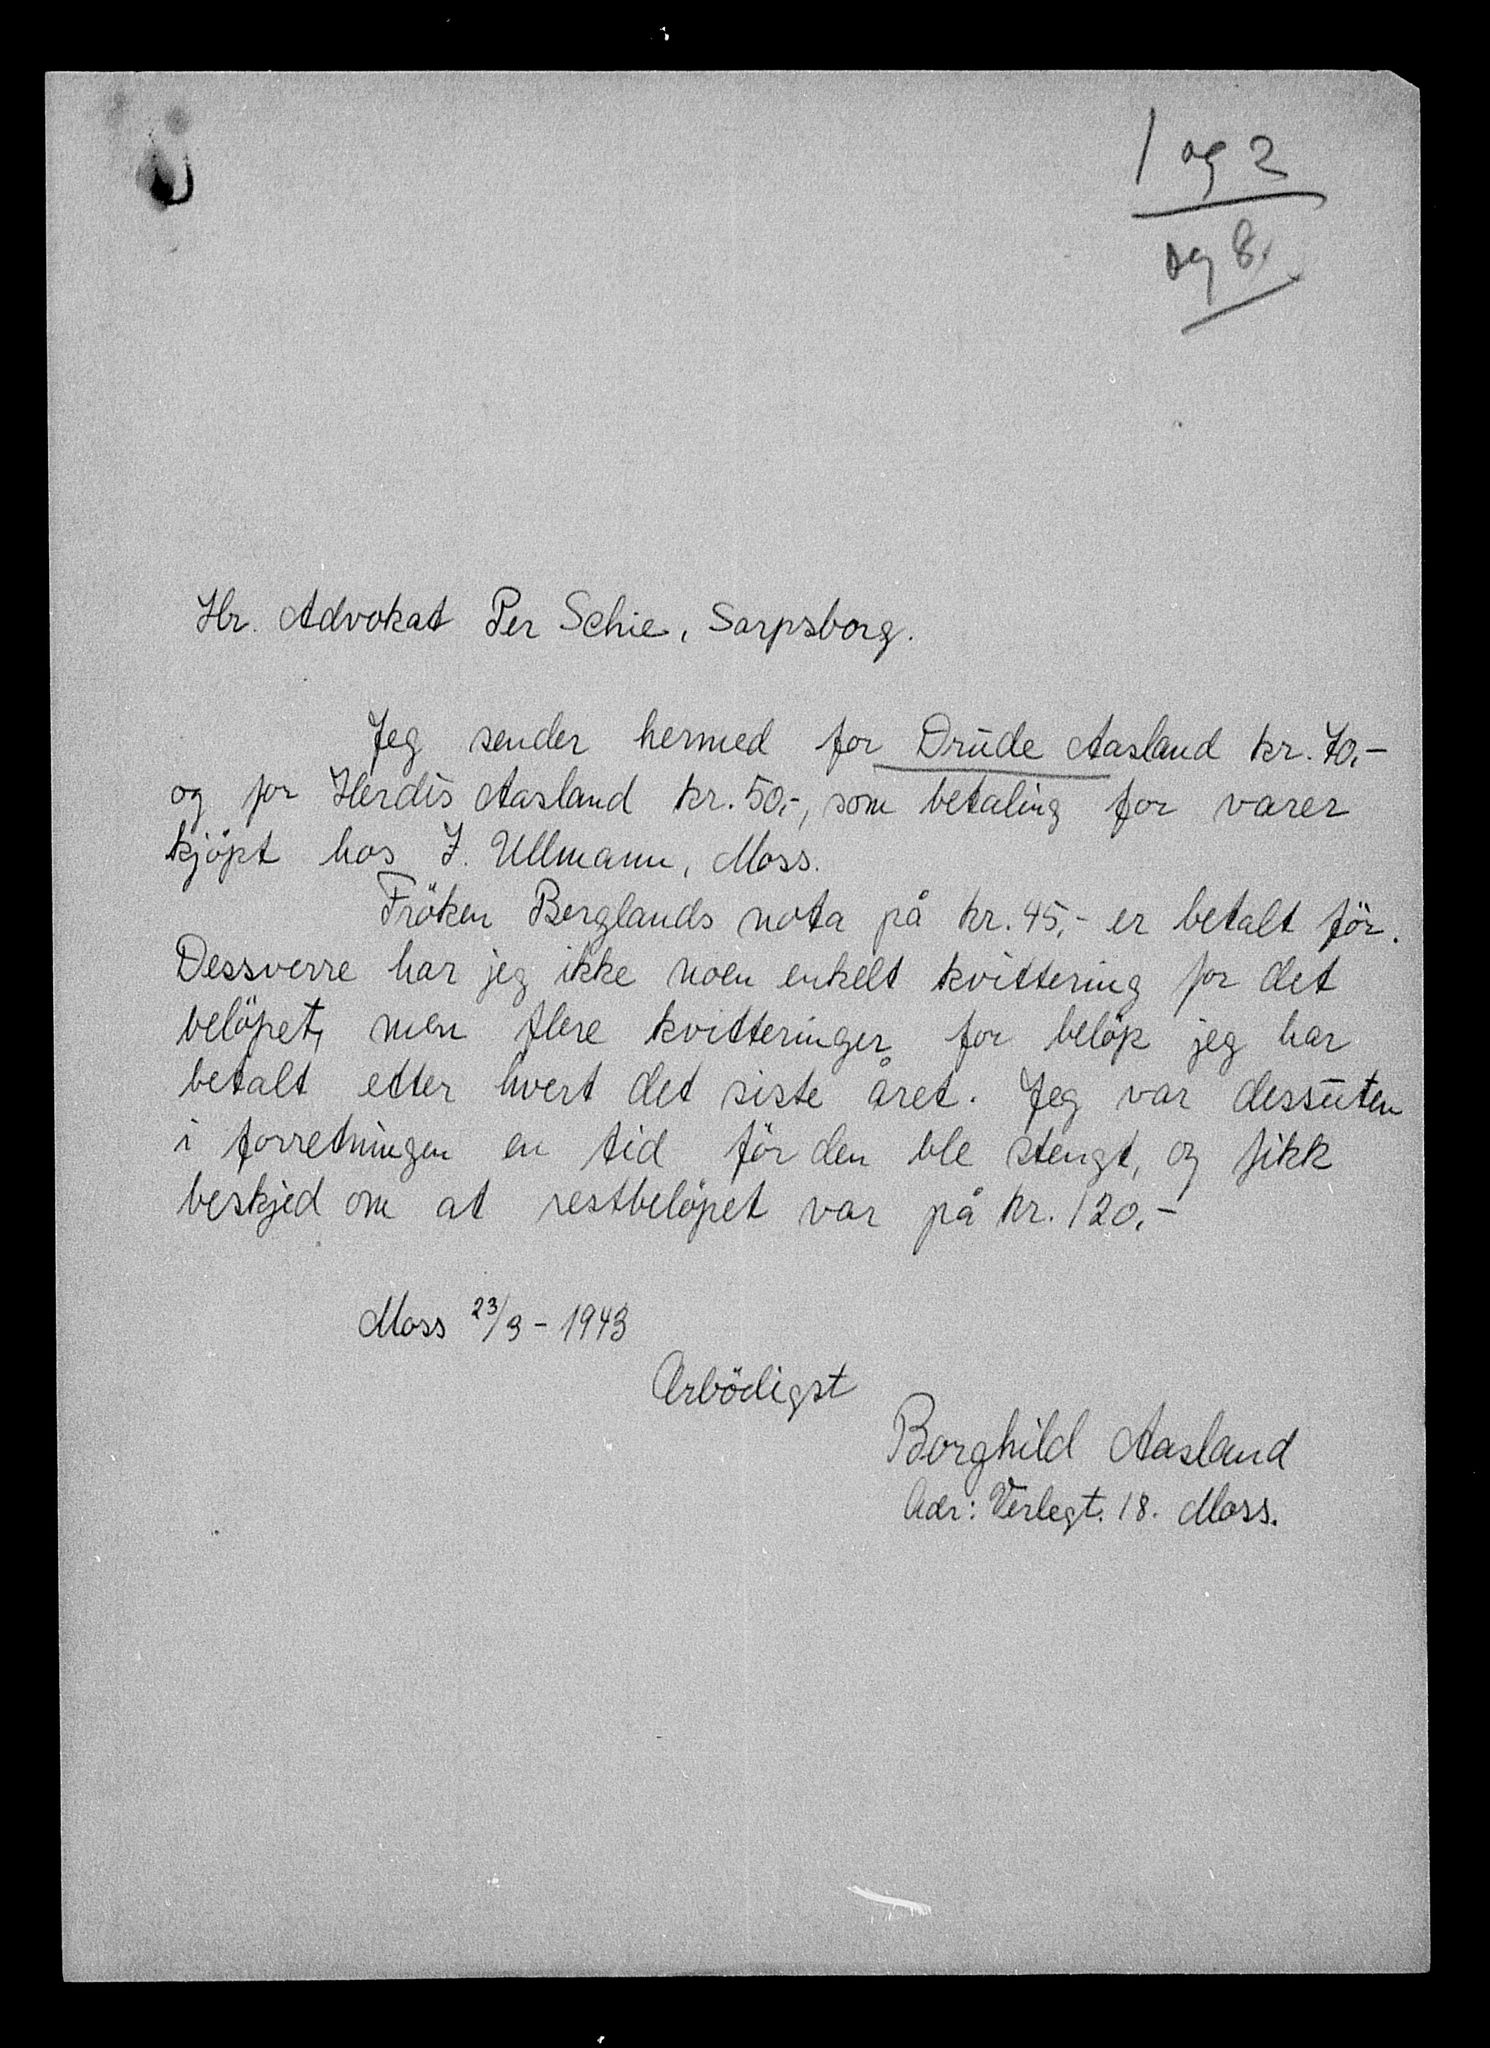 1 og 2
og 8.
Hr. Advokat Per Schie, Sarpsborg.
Jeg sender hermed for Drude Aasland kr. 70,-
og for Herdis Aasland kr. 50,-, som betaling for varer
kjöpt hos J. Ullmann, Moss.
Fröken Berglands nota på kr. 45,- er betalt för.
Dessverre har jeg ikke noen enkelt kvittering for det
belöpet, men flere kvitteringer for belöp jeg har
betalt etter hvert det siste året. Jeg var dessuten
i forretningen en tid för den ble stengt, og fikk
beskjed om at restbelöpet var på kr. 120,-
Moss 23/3 - 1943
Arbödigst
Borghild Aasland
Adr: Verlegt. 18. Moss.